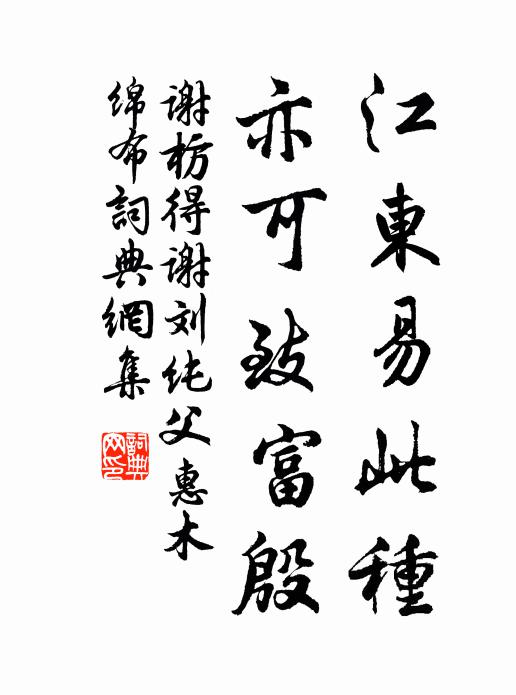 江東易此種
亦可致富殷
謝枋得謝刘纯父惠木
綿布詞典網集
詞典网印